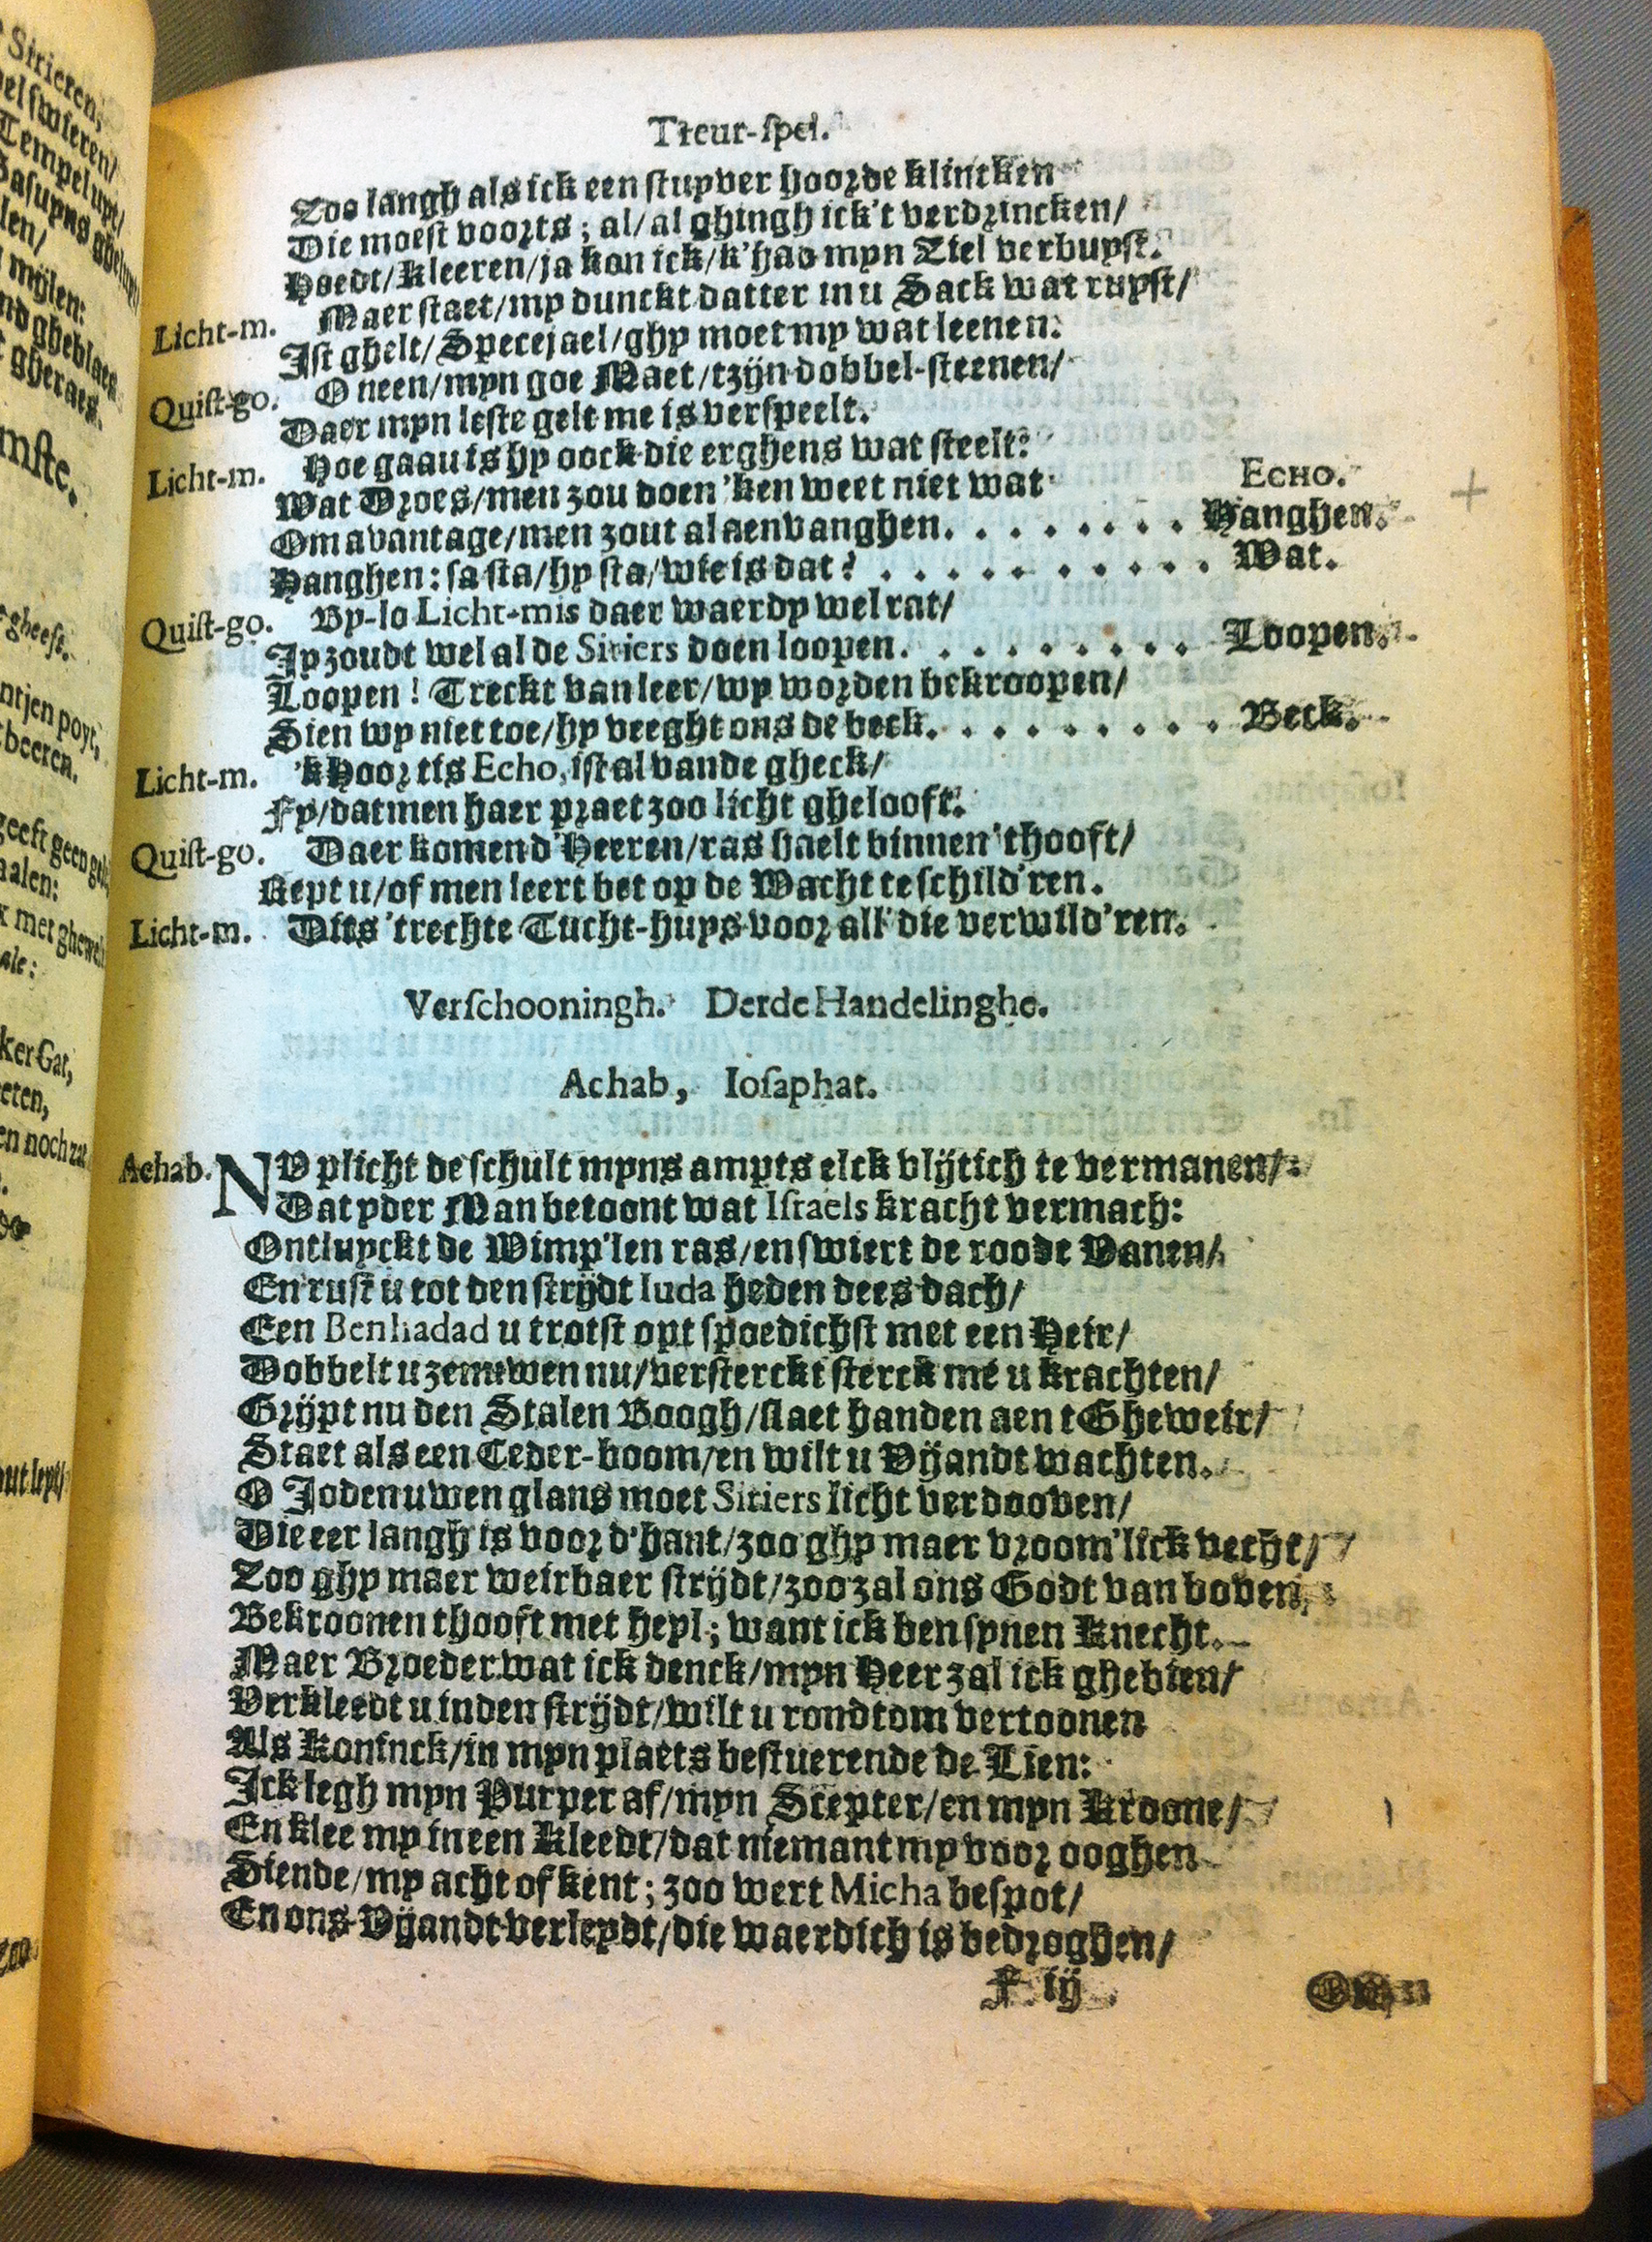 Treur-spel.
Zoo langh als ick een stuyver hoorde klincken
Die moest voorts; al/al ghingh ick't verdrincken/
Hoedt/kleeren/ja kon ick/k'had myn Ziel verbuyst.
Licht-m. Maer staet/my dunckt datter in u Sack wat ruyst/
Ist ghelt/Specejael/ghy moet my wat leenen.
Quist-go. O neen/myn goe Maet/tzijn dobbel-steenen/
Daer myn leste gelt me is verspeelt.
Licht-m. Hoe gaau is hy oock die erghens wat steelt:
Wat Droes/men zou doen 'ken weet niet wat ECHO.
Om avantage/men zout al aenvanghen. . . . . . . . Hanghen.
Hanghen: sa sta/hy sta/wie is dat? . . . . . . . . . . . Wat.
Quist-go. By-lo Licht-mis daer waerdy wel rat/
Jy zoudt wel al de Siriers doen loopen. . . . . . . . . Loopen.
Loopen! Treckt van leer/wy worden bekroopen/
Sien wy niet toe/hy veeght ons de beck. . . . . . . . . Beck.
Licht-m. 'k Hoor tis Echo, ist al vande gheck/
Fy/datmen haer praet zoo licht ghelooft.
Quist-go. Daer komen d'Heeren/ras haelt binnen 'thooft/
Rept u/of men leert bet op de Wacht te schild'ren.
Licht-m. Dits 'trechte Tucht-huys voor all' die verwild'ren.
Verschooningh. Derde Handelinghe.
Achab, Iosaphat.
Achab. NU plicht de schult myns ampts elck vlijtich te vermanen/
Dat yder Man betoont wat Israels kracht vermach:
Ontluyckt de Wimp'len ras/en swiert de roode Vanen/
En rust u tot den strijdt Iuda heden dees dach/
Een Benhadad u trotst opt spoedichst met een Heir/
Dobbelt u zenuwen nu/versterckt sterck me u krachten/
Grijpt nu den Stalen Boogh/slaet handen aen t Gheweir/
Staet als een Ceder-boom/en wilt u Vijandt wachten.
O Joden uwen glans moet Siriers licht verdooven/
Die eer langh is voor d'hant/zoo ghy maer vroom'lick vecht/
Zoo ghy maer weirbaer strijdt/zoo zal ons Godt van boven
Bekroonen thooft met heyl; want ick ben synen Knecht.
Maer Broeder wat ick denck/myn Heer zal ick ghebien/
Verkleedt u in den strijdt/wilt u rondtom vertoonen
Als Koninck/in myn plaets bestuerende de Lien:
Ick legh myn Purper af/myn Scepter/en myn Kroone/
En klee my in een Kleedt/dat niemant my voor ooghen
Siende/my acht of kent; zoo wert Micha bespot/
En ons Vijandt verleydt/die waerdich is bedroghen/
F iij